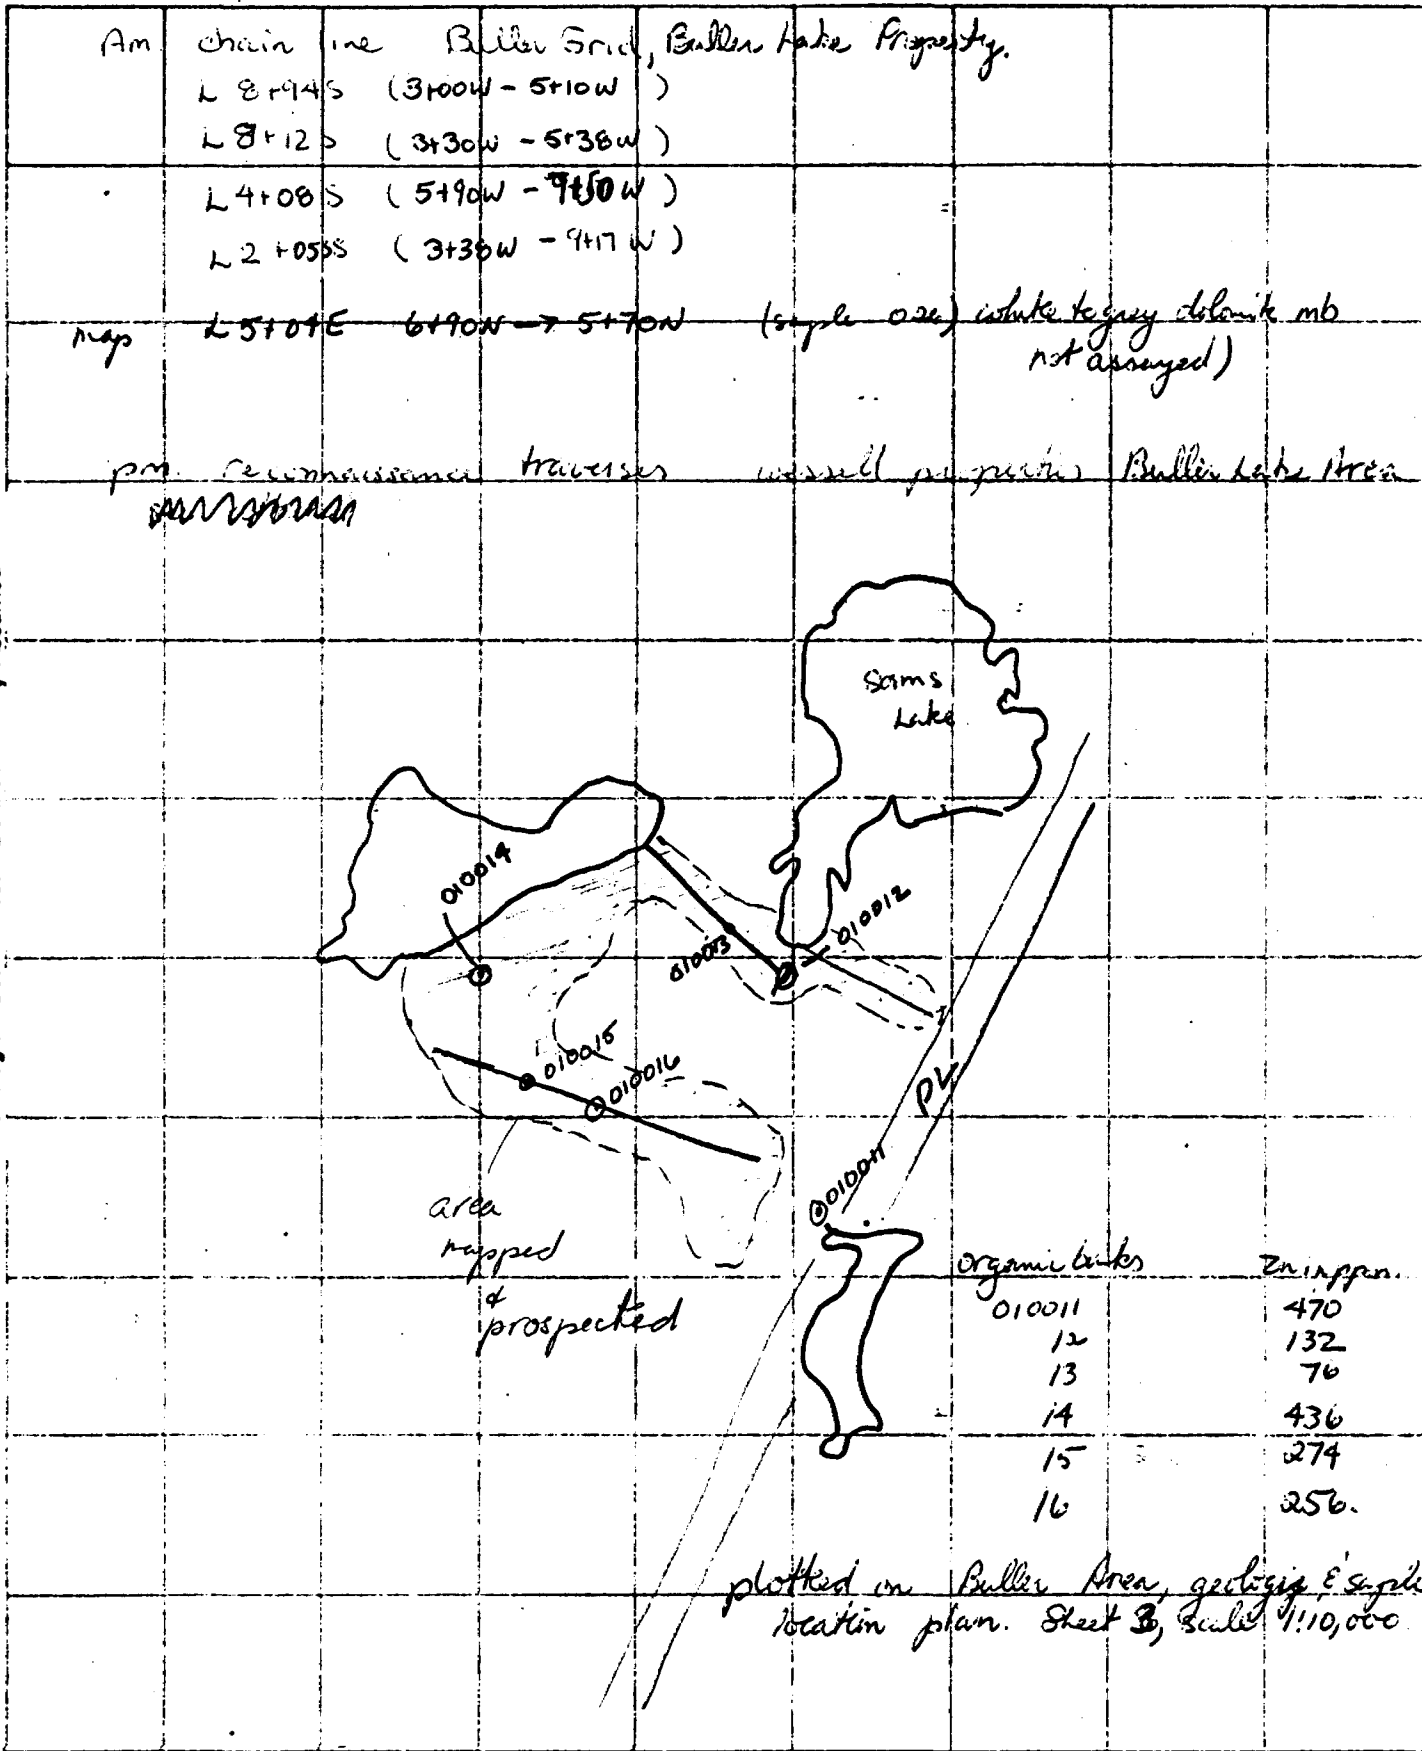 Am chain line Buller Grid, Buller Lake Property.
L 8+94S (3+00W - 5+10W)
L 8+12S (3+30W - 5+38W)
L 4+08S (5+90W - 9+50W)
L 2+05S (3+38W - 9+17W)
map L 5+04E 6+90N → 5+70N (sample 020) white to grey dolomite mb
not assayed)
pm. reconnaissance traverses properties Buller Lake Area
Sams
Lake
010014
010012
010013
010015
010016
PL
010011
area
mapped
&
prospected
organic bulks Zn in ppm.
010011 470
12 132
13 76
14 436
15 274
16 256.
plotted on Buller Area, geology & sample
location plan. Sheet 3, Scale 1:10,000